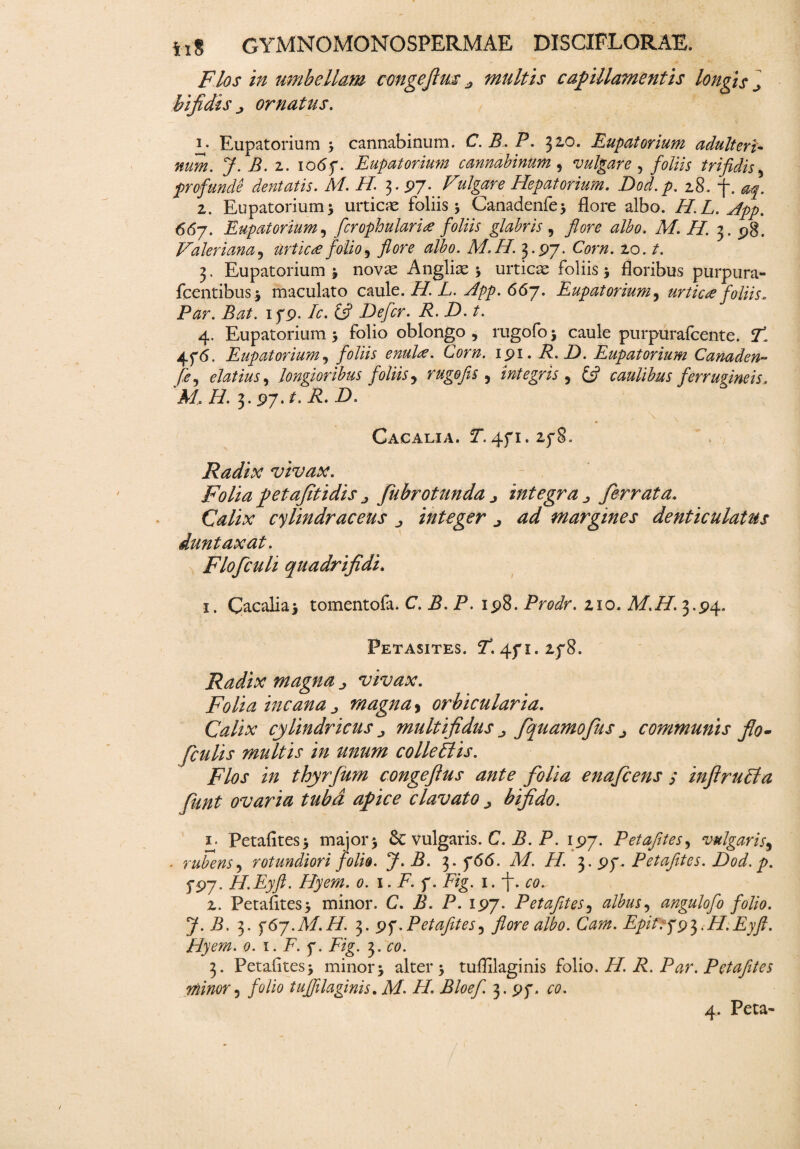 118 GYMNOMONOSPERMAE DISCIFLORAE.
Flos in umbellam congeſtus, multis capillamentis longis,
bifidis, ornatus.
1. Eupatorium; cannabinum. C. B. P. 320. Eupatorium adulteri-
num. J. B. 2. 1065. Eupatorium cannabinum, vulgare, foliis trifidis,
profundè dentatis. M. H. 3. 97. Vulgare Hepatorium. Dod. p. 28. †. aq.
2. Eupatorium; urticæ foliis; Canadenſe; flore albo. H. L. App.
667. Eupatorium, ſcrophulariæ foliis glabris, flore albo. M. H. 3. 98.
Valeriana, urticæ folio, flore albo. M. H. 3. 97. Corn. 20. t.
3. Eupatorium; novæ Angliæ; urticæ foliis; floribus purpura-
ſcentibus; maculato caule. H. L. App. 667. Eupatorium, urticæ foliis.
Par. Bat. 159. Ic. & Deſcr. R. D. t.
4. Eupatorium; folio oblongo, rugoſo; caule purpuraſcente. T.
456. Eupatorium, foliis enulæ. Corn. 191. R. D. Eupatorium Canaden-
ſe, elatius, longioribus foliis, rugoſis, integris, & caulibus ferrugineis.
M. H. 3. 97. t. R. D.
CACALIA. T. 451. 258.
Radix vivax.
Folia petaſitidis, ſubrotunda, integra, ſerrata.
Calix cylindraceus, integer, ad margines denticulatus
duntaxat.
Floſculi quadrifidi.
1. Cacalia; tomentoſa. C. B. P. 198. Prodr. 210. M. H. 3. 94.
PETASITES. T. 451. 258.
Radix magna, vivax.
Folia incana, magna, orbicularia.
Calix cylindricus, multifidus, ſquamoſus, communis flo-
ſculis multis in unum collectis.
Flos in thyrſum congeſtus ante folia enaſcens; inſtructa
ſunt ovaria tubâ apice clavato, bifido.
1. Petaſites; major; & vulgaris. C. B. P. 197. Petaſites, vulgaris,
rubens, rotundiori folio. J. B. 3. 566. M. H. 3. 95. Petaſites. Dod. p.
597. H. Eyſt. Hyem. o. 1. F. 5. Fig. 1. †. co.
2. Petaſites; minor. C. B. P. 197. Petaſites, albus, anguloſo folio.
J. B. 3. 567. M. H. 3. 95. Petaſites, flore albo. Cam. Epit. 593. H. Eyſt.
Hyem. o. 1. F. 5. Fig. 3. co.
3. Petaſites; minor; alter; tuſſilaginis folio. H. R. Par. Petaſites
minor, folio tuſſilaginis. M. H. Bloeſ. 3. 95. co.
4. Peta-